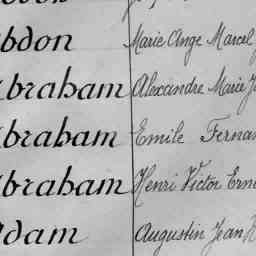 bdon Marie Ange Marcel
braham Alexandre Marie
braham Emile Ferna
braham Henri Victor Erne
dam Augustin Jean